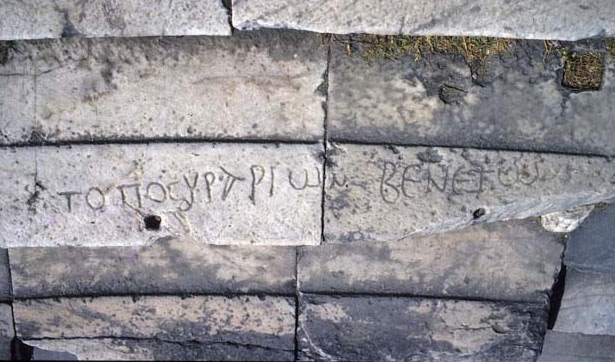 ΤΟΠΟϹΥΡΤΡΙΩΝ ΒΕΝΕΤΩΝ